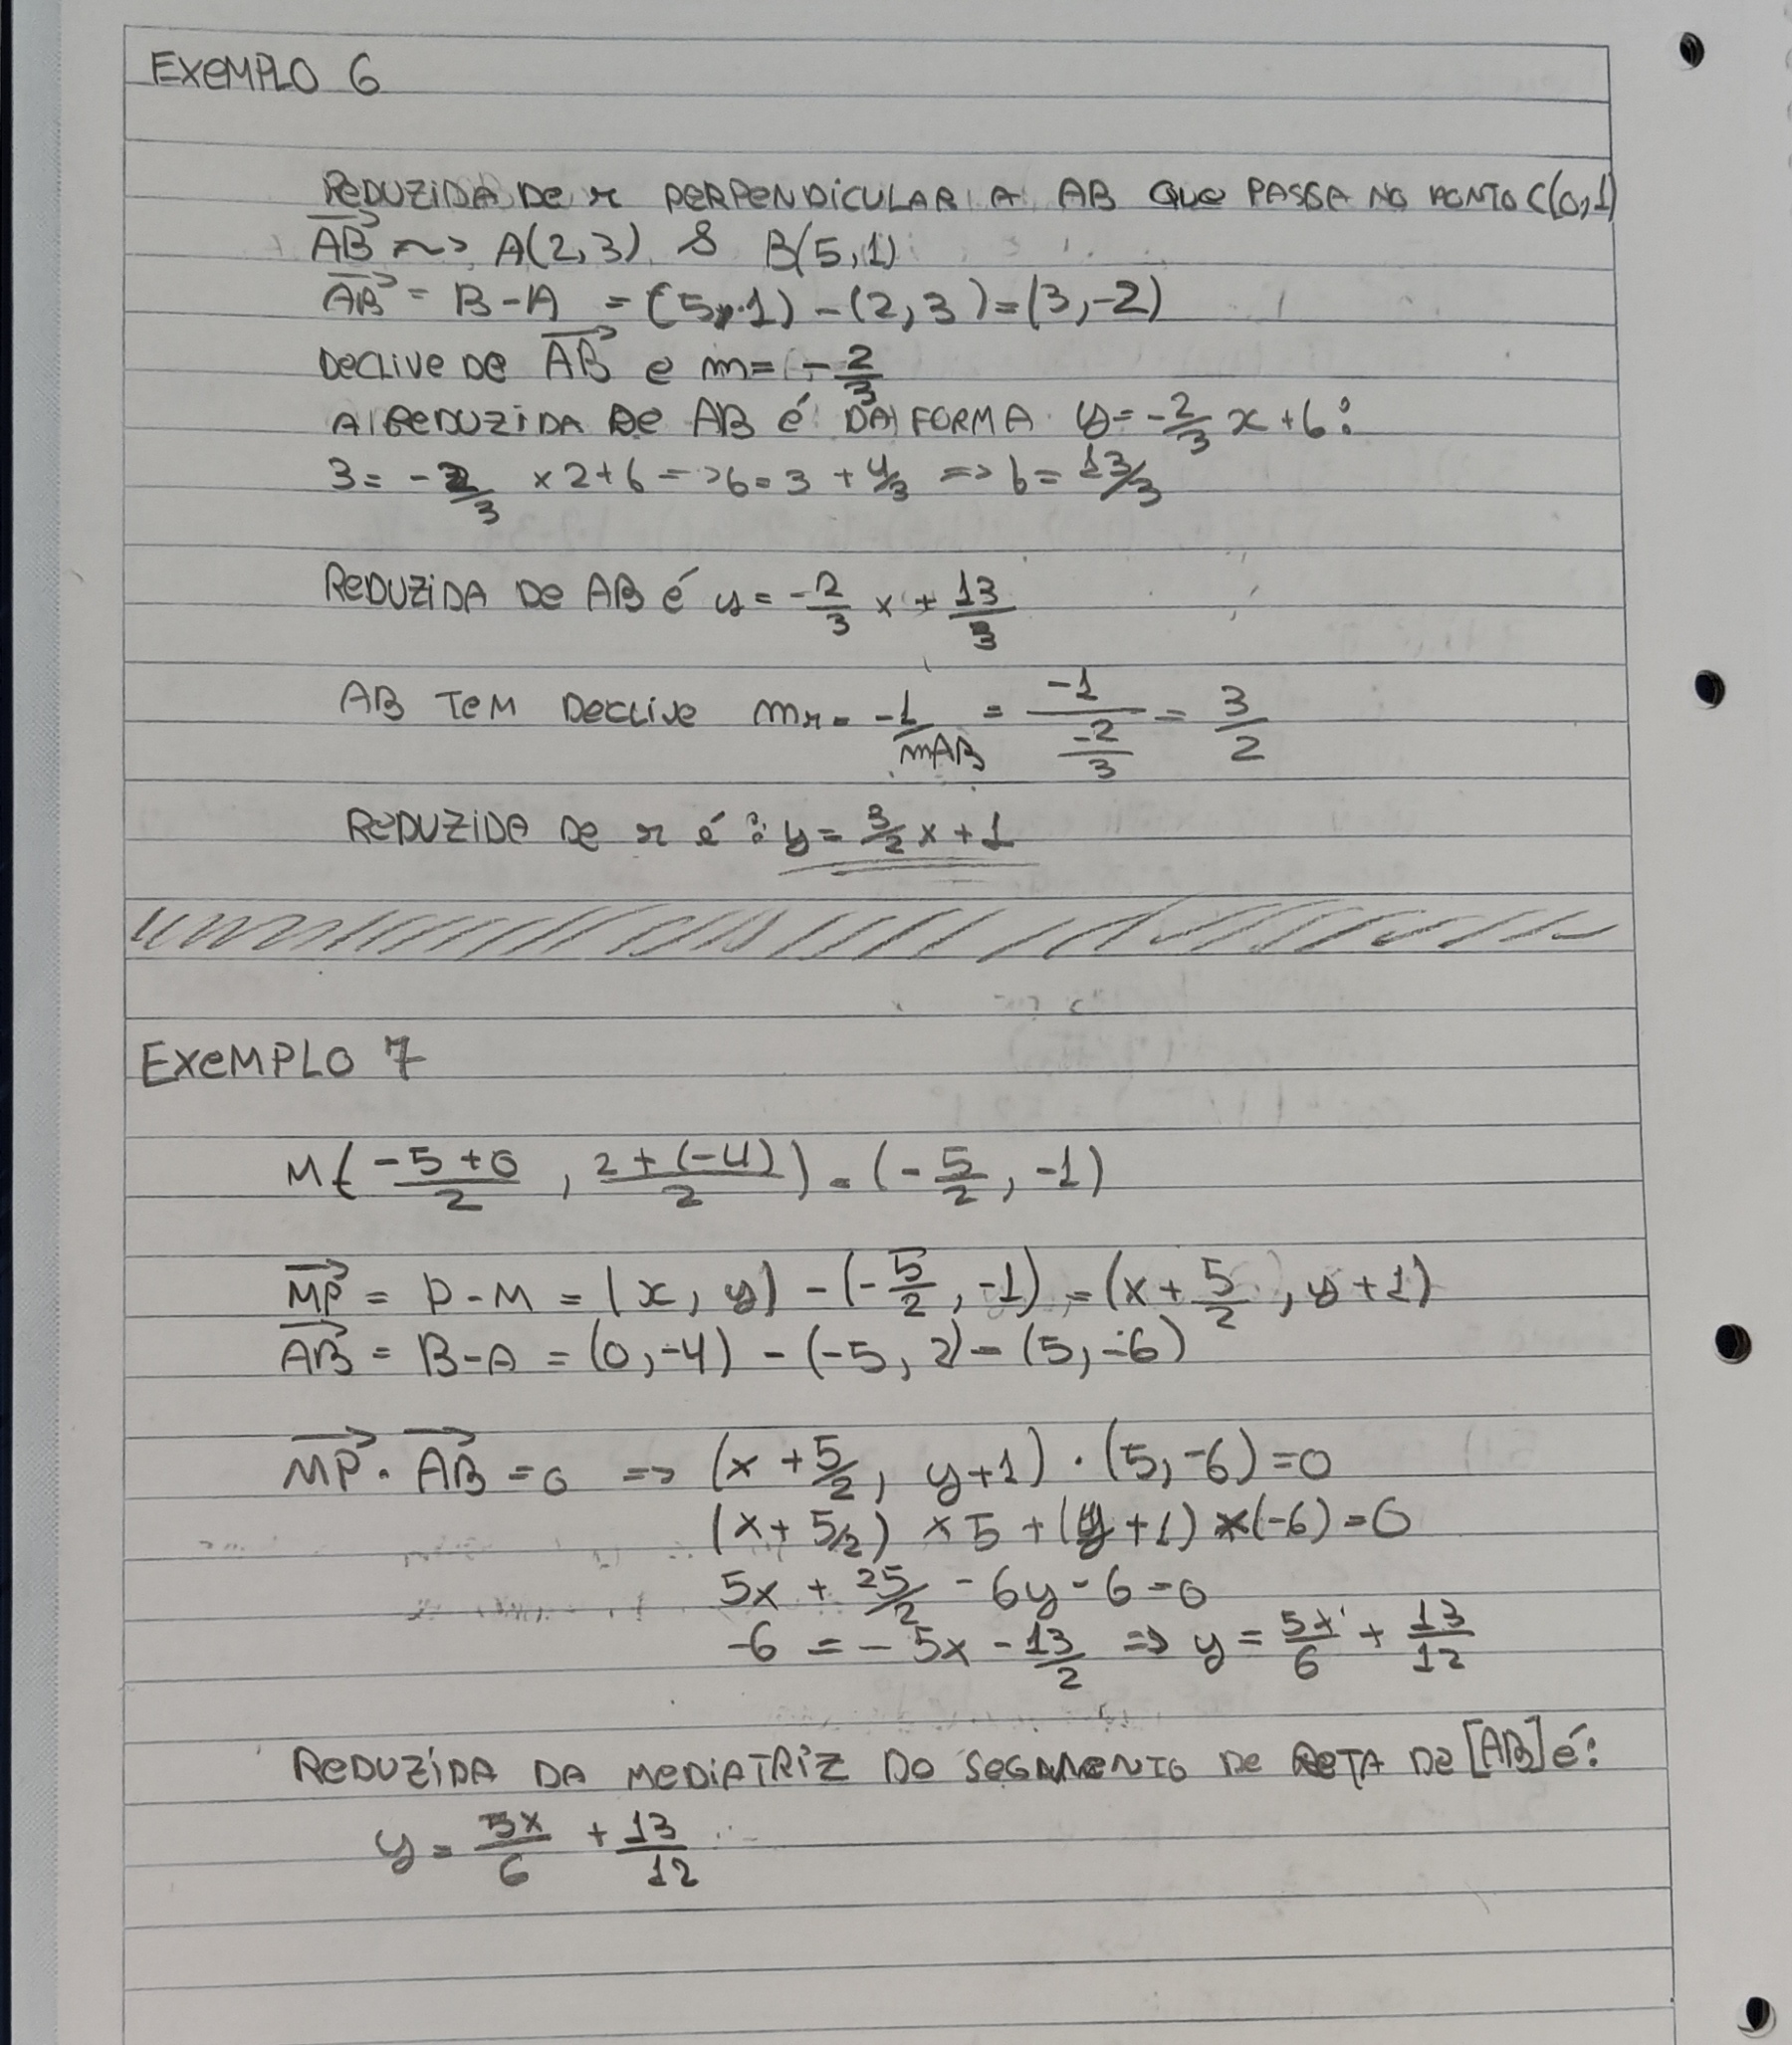 EXEMPLO 6
REDUZIDA DE r PERPENDICULAR A AB QUE PASSA NO PONTO C(0,1)
AB⃗ ~> A(2,3) & B(5,1)
AB⃗ = B-A = (5,1) - (2,3) = (3,-2)
DECLIVE DE AB⃗ e m= -2/3
A REDUZIDA DE AB é DA FORMA y = -2/3 x + b:
3 = -2/3 × 2 + b => b = 3 + 4/3 => b = 13/3
REDUZIDA DE AB é y = -2/3 x + 13/3
AB TEM DECLIVE mr = -1/mAB = -1/(-2/3) = 3/2
REDUZIDA DE r é: y = 3/2 x + 1
EXEMPLO 7
M((-5+0)/2, (2+(-4))/2) = (-5/2, -1)
MP⃗ = P-M = (x, y) - (-5/2, -1) = (x + 5/2, y+1)
AB⃗ = B-A = (0,-4) - (-5,2) = (5,-6)
MP⃗ · AB⃗ = 0 => (x + 5/2, y+1) · (5,-6) = 0
(x + 5/2) × 5 + (y+1) × (-6) = 0
5x + 25/2 - 6y - 6 = 0
-6 = -5x - 13/2 => y = 5x/6 + 13/12
REDUZIDA DA MEDIATRIZ DO SEGMENTO DE RETA DE [AB] é:
y = 5x/6 + 13/12